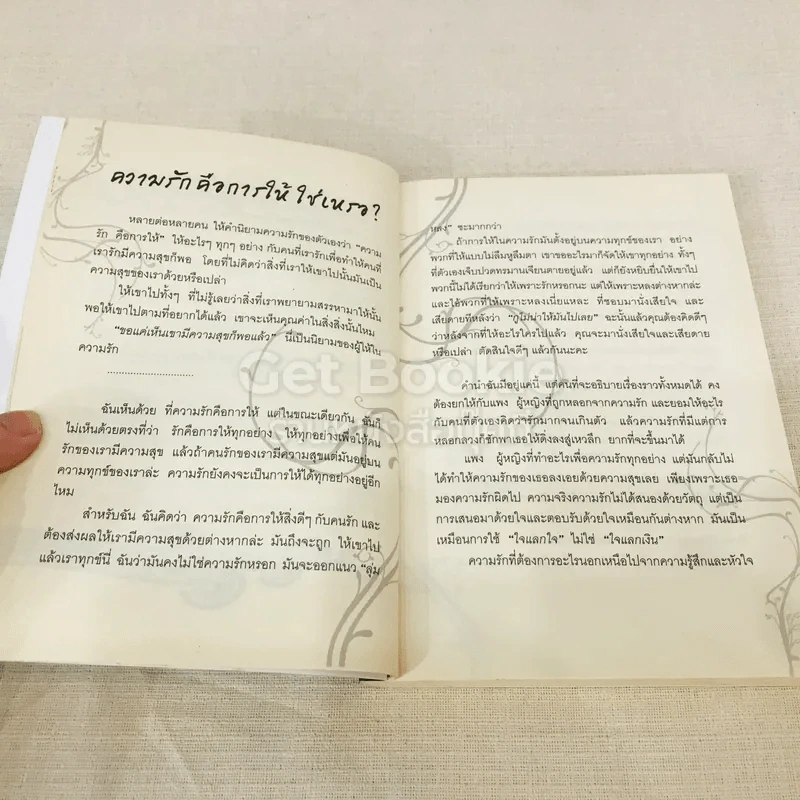 ความรัก คือการให้ ใช่เหรอ?
หลายต่อหลายคน ให้คำนิยามความรักของตัวเองว่า "ความ
รัก คือการให้" ให้อะไรๆ ทุกๆ อย่าง กับคนที่เรารักเพื่อทำให้คนที่
เรารักมีความสุขก็พอ โดยที่ไม่คิดว่าสิ่งที่เราให้เขาไปนั้นมันเป็น
ความสุขของเราด้วยหรือเปล่า
ให้เขาไปทั้งๆ ที่ไม่รู้เลยว่าสิ่งที่เราพยายามสรรหามาให้นั้น
พอให้เขาไปตามที่อยากได้แล้ว เขาจะเห็นคุณค่าในสิ่งสิ่งนั้นไหม
"ขอแค่เห็นเขามีความสุขก็พอแล้ว" นี่เป็นนิยามของผู้ให้ใน
ความรัก
..............................
ฉันเห็นด้วย ที่ความรักคือการให้ แต่ในขณะเดียวกัน ฉันก็
ไม่เห็นด้วยตรงที่ว่า รักคือการให้ทุกอย่าง ให้ทุกอย่างเพื่อให้คน
รักของเรามีความสุข แล้วถ้าคนรักของเรามีความสุขแต่มันอยู่บน
ความทุกข์ของเราล่ะ ความรักยังคงจะเป็นการให้ได้ทุกอย่างอยู่อีก
ไหม
สำหรับฉัน ฉันคิดว่า ความรักคือการให้สิ่งดีๆ กับคนรัก และ
ต้องส่งผลให้เรามีความสุขด้วยต่างหากล่ะ มันถึงจะถูก ให้เขาไป
แล้วเราทุกข์นี่ ฉันว่ามันคงไม่ใช่ความรักหรอก มันจะออกแนว "ลุ่ม
หลง" ซะมากกว่า
ถ้าการให้ในความรักมันตั้งอยู่บนความทุกข์ของเรา อย่าง
พวกที่ให้แบบไม่ลืมหูลืมตา เขาขออะไรมาก็จัดให้เขาทุกอย่าง ทั้งๆ
ที่ตัวเองเจ็บปวดทรมานเจียนตายอยู่แล้ว แต่ก็ยังหยิบยื่นให้เขาไป
พวกนี้ไม่ได้เรียกว่าให้เพราะรักหรอกนะ แต่ให้เพราะหลงต่างหากล่ะ
และไอ้พวกที่ให้เพราะหลงเนี่ยแหละ ที่ชอบมานั่งเสียใจ และ
เสียดายทีหลังว่า "กูไม่น่าให้มันไปเลย" ฉะนั้นแล้วคุณต้องคิดดีๆ
ว่าหลังจากที่ให้อะไรใครไปแล้ว คุณจะมานั่งเสียใจและเสียดาย
หรือเปล่า ตัดสินใจดีๆ แล้วกันนะคะ
คำนำฉันมีอยู่แค่นี้ แต่คนที่จะอธิบายเรื่องราวทั้งหมดได้ คง
ต้องยกให้กับแพง ผู้หญิงที่ถูกหลอกจากความรัก และยอมให้อะไร
กับคนที่ตัวเองคิดว่ารักมากจนเกินตัว แล้วความรักที่มีแต่การ
หลอกลวงก็ชักพาเธอให้ดิ่งลงสู่เหวลึก ยากที่จะขึ้นมาได้
แพง ผู้หญิงที่ทำอะไรเพื่อความรักทุกอย่าง แต่มันกลับไม่
ได้ทำให้ความรักของเธอลงเอยด้วยความสุขเลย เพียงเพราะเธอ
มองความรักผิดไป ความจริงความรักไม่ได้สนองด้วยวัตถุ แต่เป็น
การเสนอมาด้วยใจและตอบรับด้วยใจเหมือนกันต่างหาก มันเป็น
เหมือนการใช้ "ใจแลกใจ" ไม่ใช่ "ใจแลกเงิน"
ความรักที่ต้องการอะไรนอกเหนือไปจากความรู้สึกและหัวใจ
Get Bookie